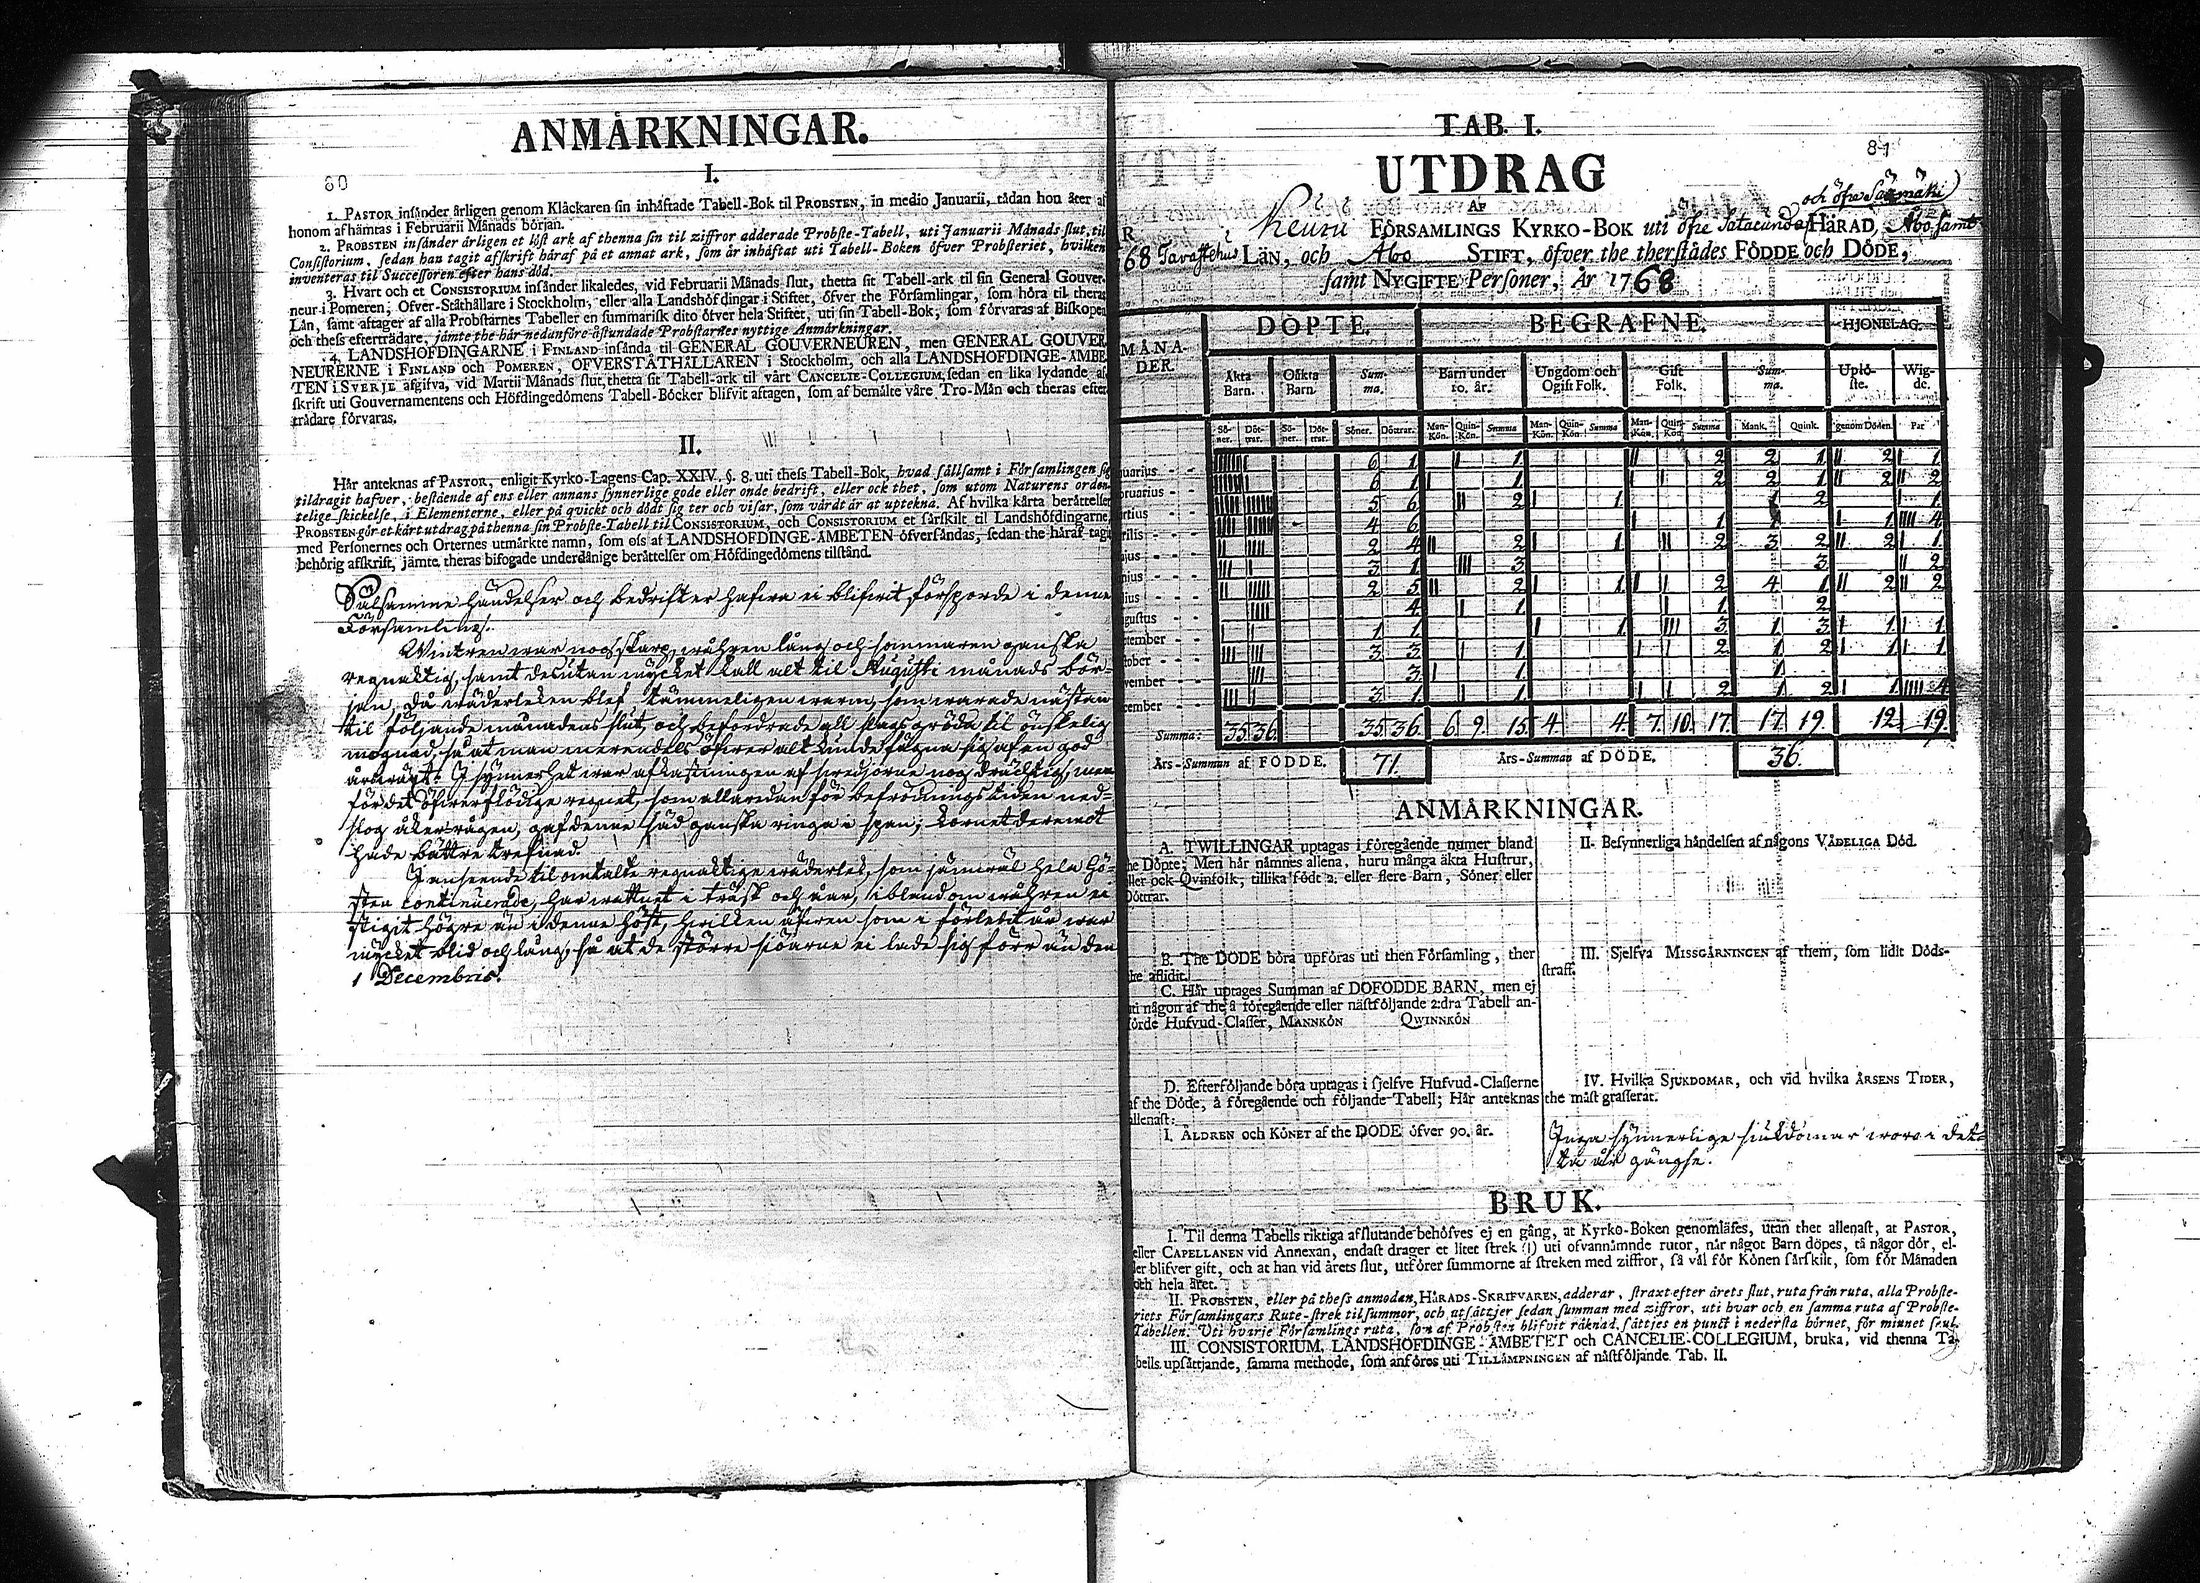 ANMÅRKNINGAR.
80
I.
1. PASTOR insånder årligen genom Klåckaren sin inhåftade Tabell-Bok til PROBSTEN, in medio Januarii, tådan hon åter af
honom afhåmras i Februarii Månads början.
2. PROBSTEN insånder årligen et löst ark af thenna sin til ziffror adderade Probste-Tabell, uti Januarii Månads slut, til
Consistorium, sedan han tagit afskrift håraf på et annat ark, som år inhåftat uti Tabell-Boken öfver Probsteriet, hvilken
inventeras til Successoren efter hans död.
3. Hvart och et CONSISTORIUM insånder likaledes, vid Februarii Månads slut, thetta sit Tabell-ark til sin General Gouver-
neur i Pomeren, Ofver-Ståthållare i Stockholm, eller alla Landshöfdingar i Stiftet, öfver the Församlingar, som höra til theras
Lån, samt aftager af alla Probstarnes Tabeller en summarisk dito öfver hela Stiftet, uti sin Tabell-Bok, som förvaras af Biskopen
och thess eftertrådare, jämte the hår nedanföre åstundade Probstarnes nyttige Anmårkningar.
4. LANDSHÖFDINGARNE i FINLAND insånda til GENERAL GOUVERNEUREN, men GENERAL GOUVER-
NEURERNE i FINLAND och POMEREN, OFVERSTÅTHÅLLAREN i Stockholm, och alla LANDSHÖFDINGE-ÅMBE-
TEN i SVERJE afgifva, vid Martii Månads slut, thetta sit Tabell-ark til vårt CANCELIE-COLLEGIUM, sedan en lika lydande af-
skrift uti Gouvernamentens och Höfdingedömens Tabell-Böcker blifvit aftagen, som af bemålte våre Tro-Mån och theras efter-
trådare förvaras.
II.
Hår anteknas af PASTOR, enligit Kyrko-Lagens Cap. XXIV. §. 8. uti thess Tabell-Bok, hvad sållsamt i Församlingen sig
tildragit hafver, bestående af ens eller annans synnerlige gode eller onde bedrift, eller ock thet, som utom Naturens orden-
telige skickelse, i Elementerne, eller på quickt och dödt sig ter och visar, som vårdt år at uptekna. Af hvilka kårta beråttelser
PROBSTEN gör et kårt utdrag på thenna sin Probste-Tabell til CONSISTORIUM, och CONSISTORIUM et sårskilt til Landshöfdingarne,
med Personernes och Orternes utmårkte namn, som oss af LANDSHÖFDINGE-ÅMBETEN öfversåndas, sedan the håraf tagit
behörig afskrift, jämte theras bifogade underdånige beråttelser om Höfdingedömens tilstånd.
Sälsamme händelser och bedrifter hafwa ei blifwit försporde i denne
Församling.
Wintren war nog skarp, wåhren lång och sommaren ganska
regnaktig, samt desutan mycket kall alt til Augusti månads bör-
jan, då wäderleken blef tämmeligen warm, som warade nästan
til följande månadens slut, och befordrade all slags gröda til önskelig
mognad, så at man merendels öfwer alt kunde fägna sig af en god
årswäxt. I synnerhet war afkastningen af swedjorne nog dräcktig, men
för det öfwerflödige regnet, som allaredan för befrödnings tiden ned-
slog åker-rågen, gaf denne säd ganska ringa i span; kornet deremot
hade bättre trefnad.
I anseende til omtalte regnaktige wäderlek, som jämwäl hela hö-
sten continuerade, har wattnet i träsk och åar, ibland om wåhren ei
stigit högre än i denne höst, hwilken äfwen som i förledit år war
mycket blid och lång, så at de större siöarne ei lade sig förr än den
1 Decembris.
TAB. I.
81
UTDRAG
AF
och öfre Sääxmäki
Keuru FÖRSAMLINGS KYRKO-BOK uti öfre Satacunda HÅRAD, Åbo samt
68 Tavastehus LÅN, och Åbo STIFT, öfver the therstådes FÖDDE och DÖDE,
samt NYGIFTE Personer, År 1768
MÅNA-DER. DÖPTE. BEGRAFNE. HJONELAG.
Åkta Barn. Oåkta Barn. Summa. Barn under 10. år. Ungdom och Ogift Folk. Gift Folk. Summa. Uplöste. Wigde.
Söner. Döttrar. Söner. Döttrar. Söner. Döttrar. Man-Kön. Quin-Kön. Summa Man-Kön. Quin-Kön. Summa Man-Kön. Quin-Kön. Summa Mank. Quink. genom Döden. Par
nuarius - - 6 1 1 2 2 1 2 1
bruarius - - 6 1 1 2 2 1 2 2
rtius - - 5 6 2 1 1 2 1
rilis - - 4 6 1 1 1 4
ajus - - 2 4 2 1 2 3 2 2 1
nius - - 3 1 3 3 2
lius - - 2 5 2 1 2 4 1 2 2
gustus - - 4 1 1 2
ptember - - 1 1 1 3 1 3 1 1
tober - - 3 3 1 2 1 2 1 1
vember - - 3 1 1
cember - - 3 1 1 2 1 2 1 4
Summa: 35 36 35 36 6 9 15 4 4 7 10 17 17 19 12 19
Års-Summan af FÖDDE. 71. Års-Summan af DÖDE. 36.
ANMÅRKNINGAR.
A. TWILLINGAR uptagas i föregående numer bland
he Döpte; Men hår nåmnes allena, huru många åkta Hustrur,
ller ock Qvinfolk, tillika födt 2. eller flere Barn, Söner eller
Döttrar.
B. The DÖDE böra upföras uti then Församling, ther
he aflidit.
C. Hår uptages Summan af DÖFÖDDE BARN, men ej
ti någon af the å föregående eller nåstföljande 2:dra Tabell an-
förde Hufvud-Classer, MANNKÖN QWINNKÖN
D. Efterföljande böra uptagas i sjelfve Hufvud-Classerne
af the Döde, å föregående och följande Tabell; Hår anteknas
allenast:
I. ÅLDREN och KÖNET af the DÖDE öfver 90. år.
II. Besynnerliga håndelsen af någons VÅDELIGA Död.
III. Sjelfva MISSGÅRNINGEN af them, som lidit Döds-
straff.
IV. Hvilka SJUKDOMAR, och vid hvilka ÅRSENS TIDER,
the måst grasserat.
Inga synnerlige siukdomar woro i det-
ta år gängse.
BRUK.
I. Til denna Tabells riktiga afslutande behöfves ej en gång, at Kyrko-Boken genomlåses, utan thet allenast, at PASTOR,
eller CAPELLANEN vid Annexan, endast drager et litet strek (|) uti ofvannåmnde rutor, når något Barn döpes, tå någor dör, el-
ler blifver gift, och at han vid årets slut, utförer summorne af streken med ziffror, så vål för Könen sårskilt, som för Månaden
och hela året.
II. PROBSTEN, eller på thess anmodan, HÅRADS-SKRIFVAREN, adderar, straxt efter årets slut, ruta från ruta, alla Probste-
riets Församlingars Rute-strek til summor, och utsåttjer sedan summan med ziffror, uti hvar och en samma ruta af Probste-
Tabellen. Uti hvarje Församlings ruta, som af Probsten blifvit råknad, såttjes en punct i nedersta hörnet, för minnet skul.
III. CONSISTORIUM, LANDSHÖFDINGE-ÅMBETET och CANCELIE-COLLEGIUM, bruka, vid thenna Ta-
bells upsåttjande, samma methode, som anföres uti TILLÅMPNINGEN af nåstföljande Tab. II.